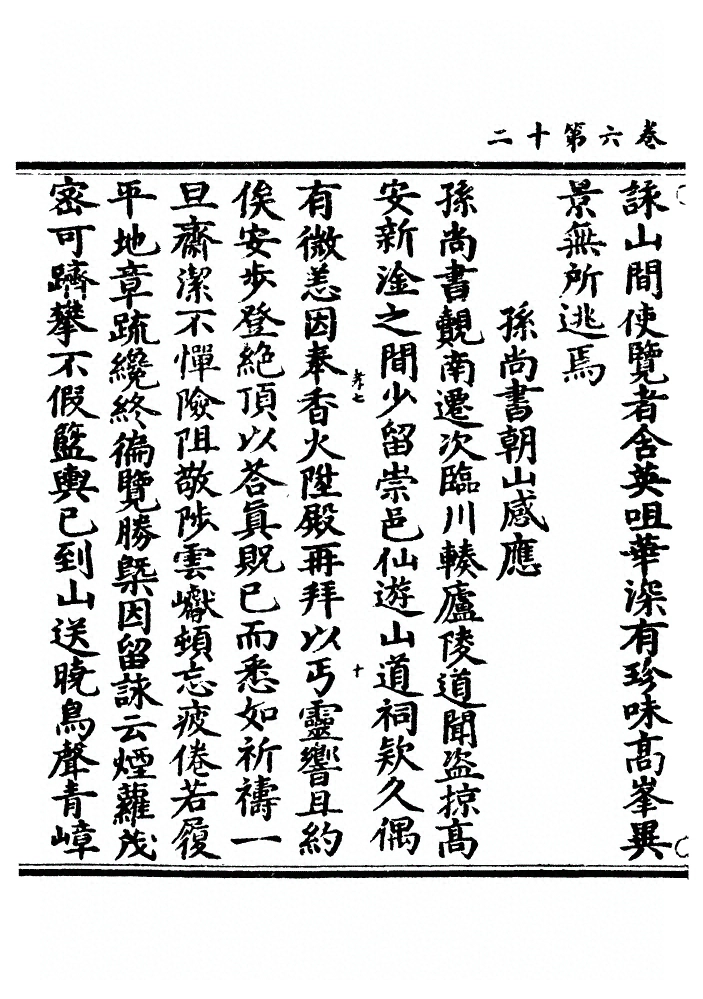 卷六第十二
詠山間使覽者含英咀華深有珍味高峯異
景無所逃焉
孫尚書朝山感應
孫尚書覿南遷次臨川轃廬陵道聞盜掠高
安新淦之間少留崇邑仙遊山道祠欵久偶
孝七
十
有微恙因奉香火陞殿再拜以丐靈響且約
俟安步登絶頂以荅真貺已而悉如祈禱一
旦齋潔不憚險阻敬陟雲巘頓忘疲倦若履
平地章疏纔終徧覽勝槩因留詠云煙蘿茂
密可躋攀不假籃輿已到山送曉鳥聲青嶂